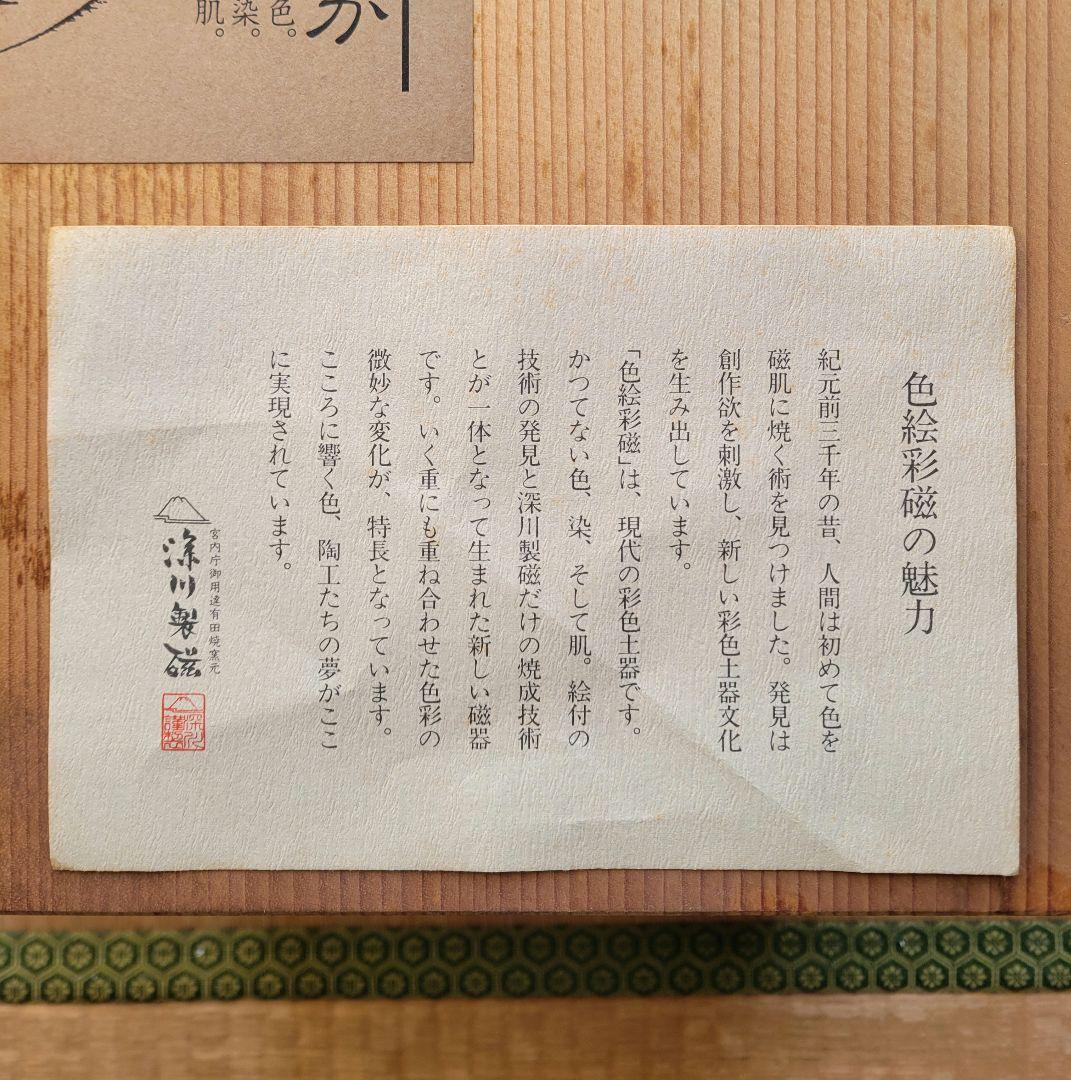 か
色。
染。
肌。
色絵彩磁の魅力
紀元前三千年の昔、人間は初めて色を
磁肌に焼く術を見つけました。発見は
創作欲を刺激し、新しい彩色土器文化
を生み出しています。
「色絵彩磁」は、現代の彩色土器です。
かつてない色、染、そして肌。絵付の
技術の発見と深川製磁だけの焼成技術
とが一体となって生まれた新しい磁器
です。いく重にも重ね合わせた色彩の
微妙な変化が、特長となっています。
こころに響く色、陶工たちの夢がここ
に実現されています。
宮内庁御用達有田焼窯元
深川製磁